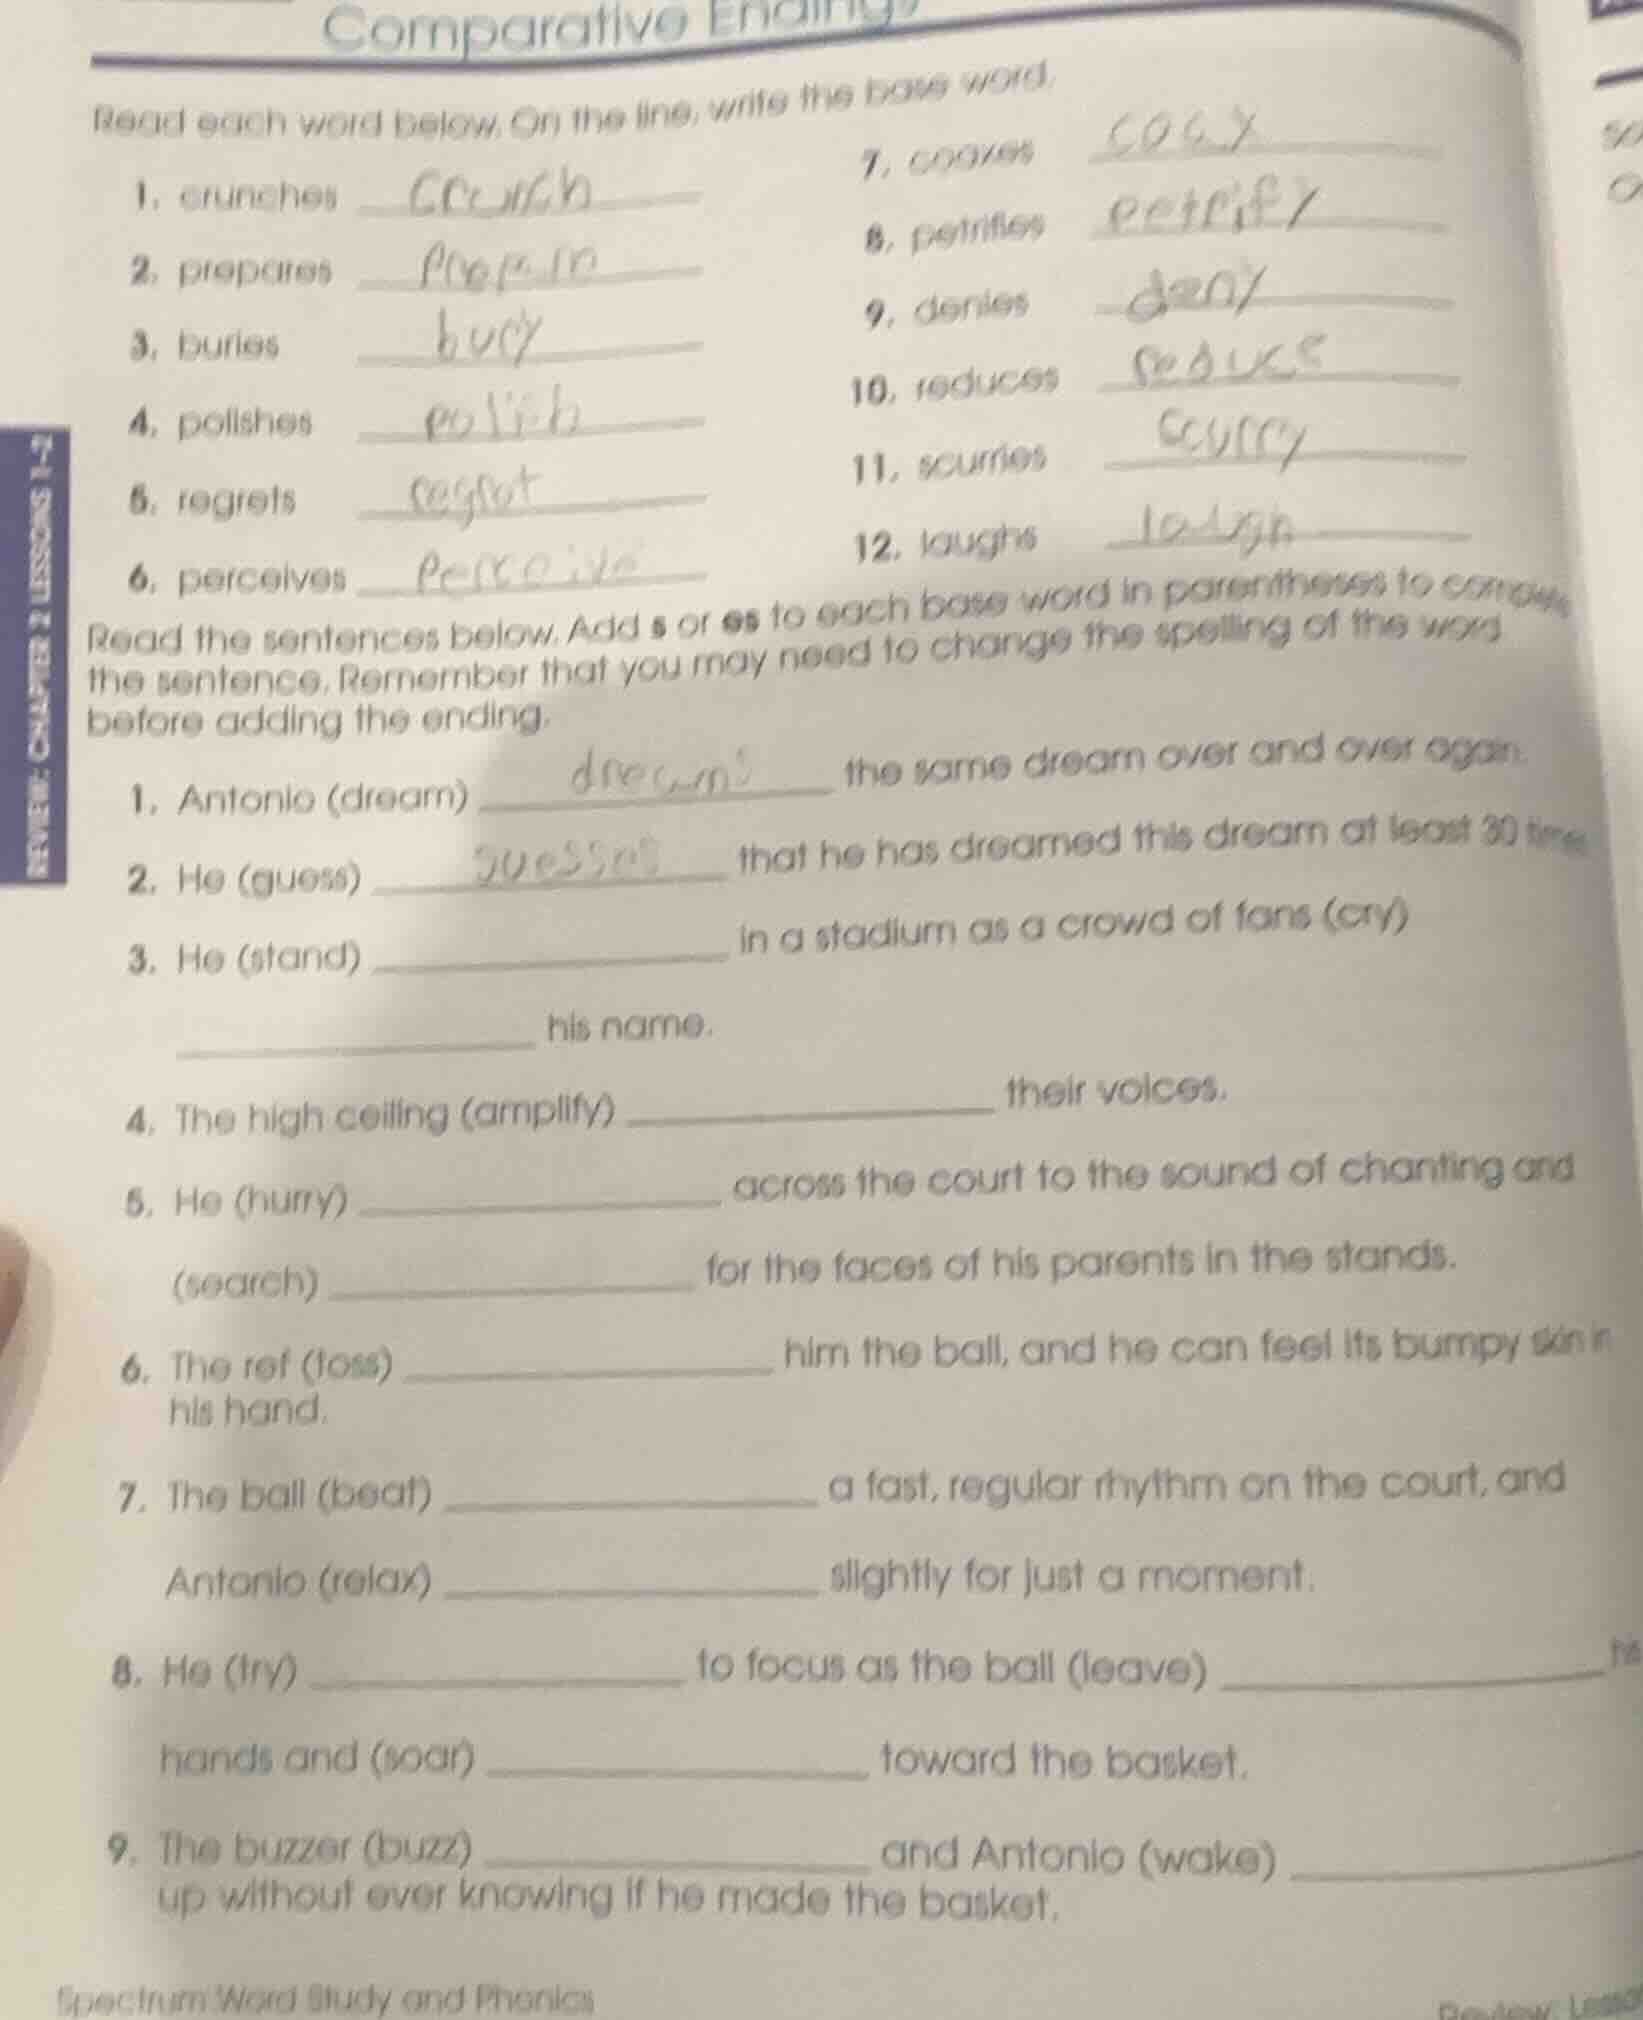 Comparative Endings
Read each word below. On the line, write the base word.
1. crunches crunch
2. prepares
3. buries bury
4. polishes polish
5. regrets regret
6. perceives perceive
7. coaxes coax
8. petrifies petrify
9. denies deny
10. reduces reduce
11. scurries scurry
12. laughs laugh
Read the sentences below. Add s or es to each base word in parentheses to complete
the sentence. Remember that you may need to change the spelling of the word
before adding the ending.
1. Antonio (dream) dreams the same dream over and over again.
2. He (guess) guesses that he has dreamed this dream at least 30 times
3. He (stand) in a stadium as a crowd of fans (cry)
his name.
4. The high ceiling (amplify) their voices.
5. He (hurry) across the court to the sound of chanting and
(search) for the faces of his parents in the stands.
6. The ref (toss) him the ball, and he can feel its bumpy skin in
his hand.
7. The ball (beat) a fast, regular rhythm on the court, and
Antonio (relax) slightly for just a moment.
8. He (try) to focus as the ball (leave) his
hands and (soar) toward the basket.
9. The buzzer (buzz) and Antonio (wake)
up without ever knowing if he made the basket.
REVIEW: CHAPTER 2 LESSONS 1-2
Spectrum Word Study and Phonics
Review: